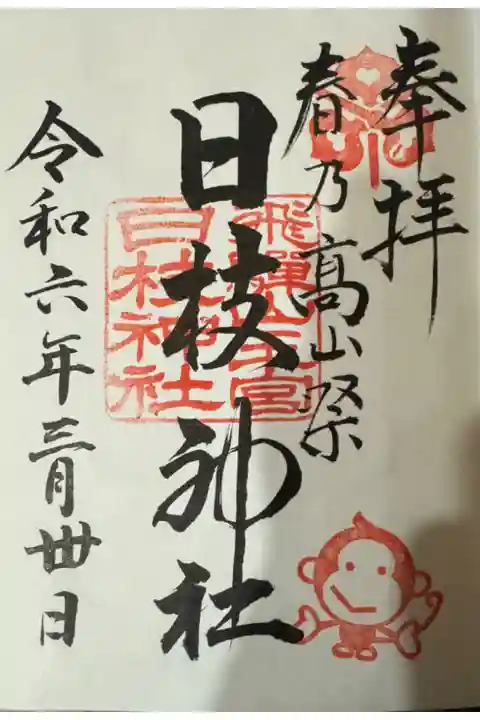 奉拝
春乃高山祭
日枝神社
飛騨山王宮
日枝神社
令和六年三月卅日